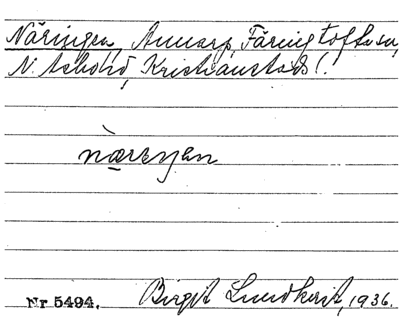 Näringen, Annarp, Färingtofta sn,
N. Åsbo hd, Kristianstads l.
næreŋen
Nr 5494. Birgit Lundkvist, 1936.